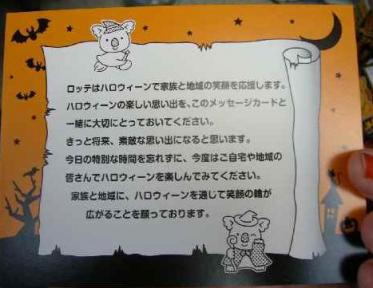 ロッテはハロウィーンで家族と地域の笑顔を応援します。
ハロウィーンの楽しい思い出を、このメッセージカードと
一緒に大切にとっておいてください。
きっと将来、素敵な思い出になると思います。
今日の特別な時間を忘れずに、今度はご自宅や地域の
皆さんでハロウィーンを楽しんでみてください。
家族と地域に、ハロウィーンを通じて笑顔の輪が
広がることを願っております。